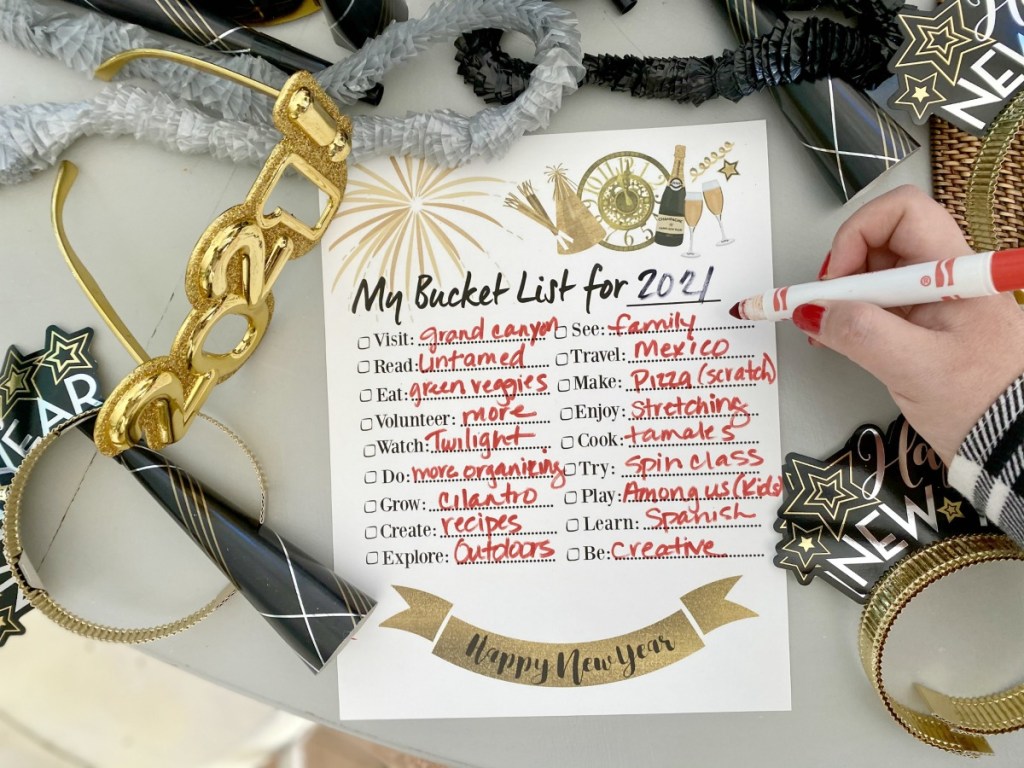 My Bucket List for 2021
Visit: grand canyon
Read: Untamed
Eat: green veggies
Volunteer: more
Watch: Twilight
Do: more organizing
Grow: cilantro
Create: recipes
Explore: Outdoors
See: family
Travel: Mexico
Make: Pizza (scratch)
Enjoy: Stretching
Cook: tamales
Try: Spin class
Play: Among us (Kids)
Learn: Spanish
Be: Creative
Happy New Year
2021
CHAMPAGNE
NEW
NEW
EAR